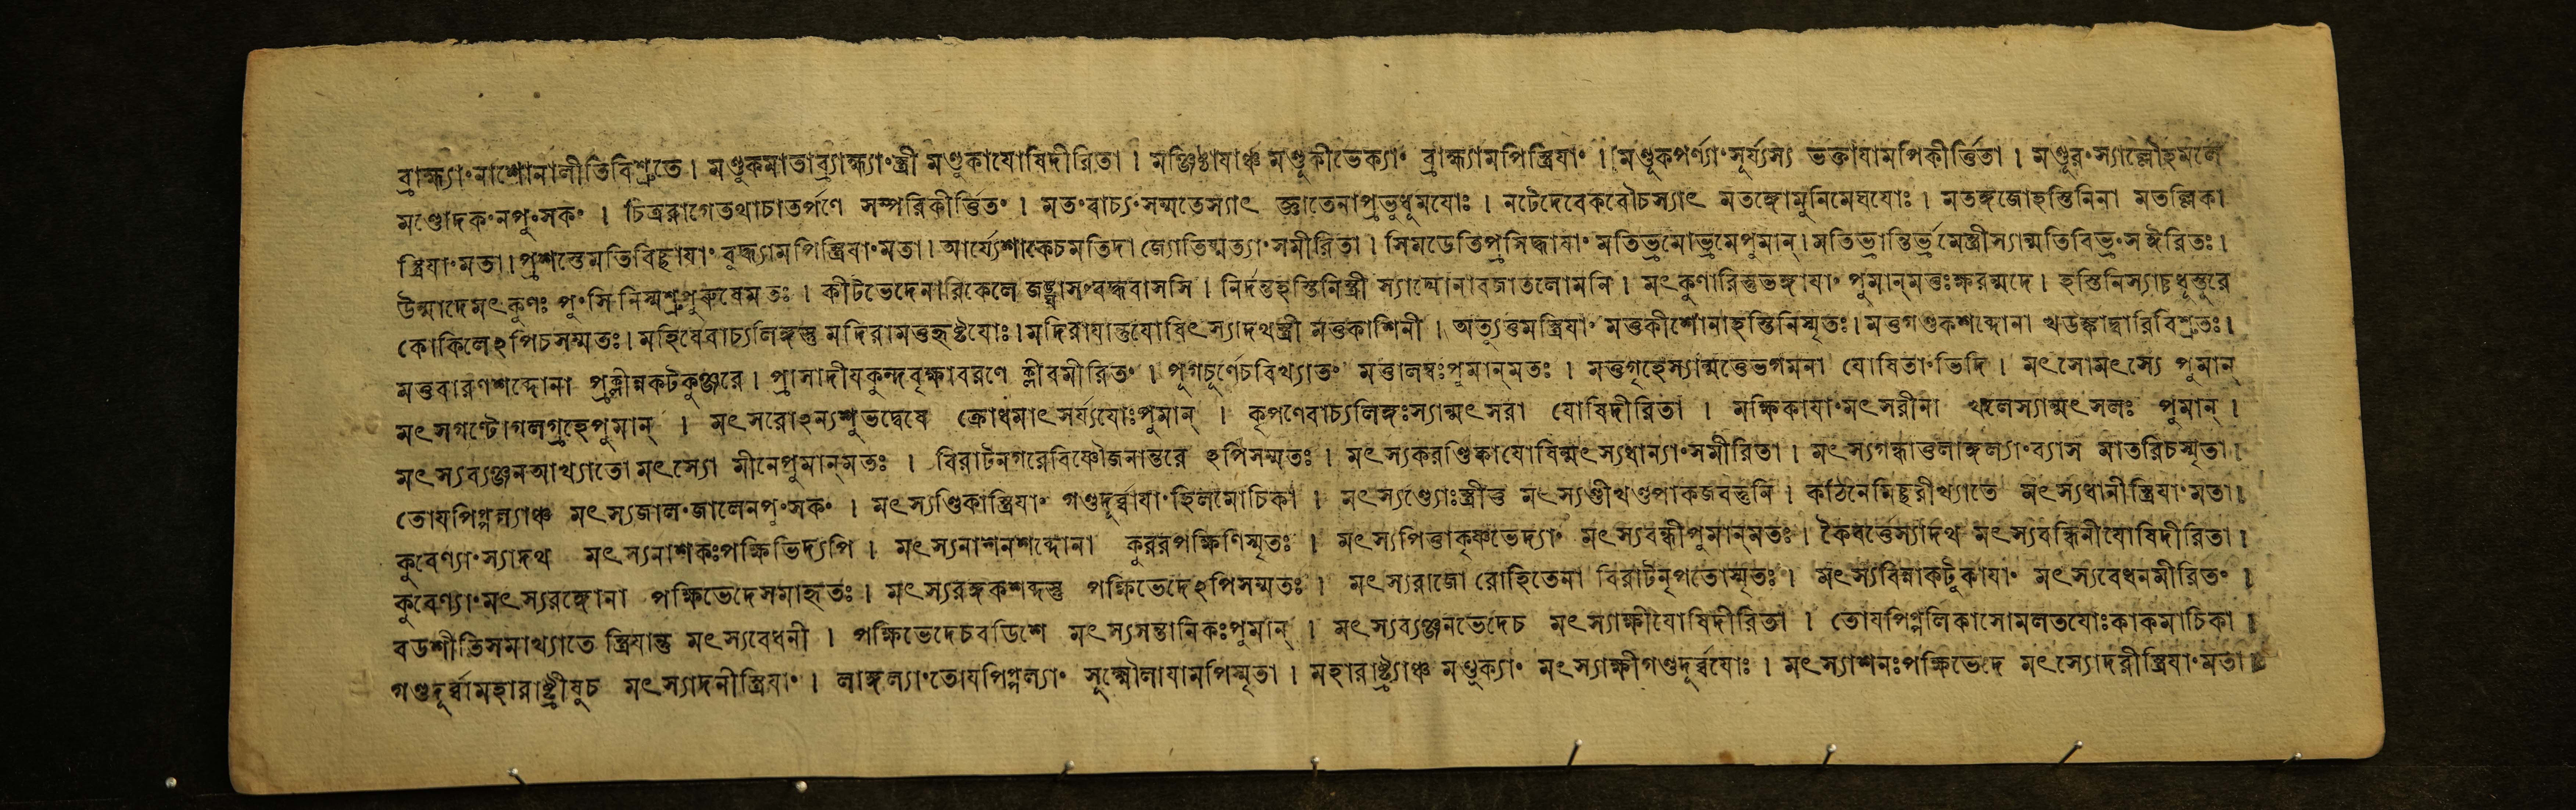 ব্রাহ্ম্যাং নাশোনালীতিবিশ্রুতে । মণ্ডুকমাতাব্রাহ্ম্যাং স্ত্রী মণ্ডুকাযোষিদীরিতা । মঞ্জিষ্ঠাযাঞ্চ মণ্ডুকীভেক্যাং ব্রাহ্ম্যামপিস্ত্রিযাং । মণ্ডুকপর্ণ্যাং সূর্য্যস্য ভক্তাযামপিকীর্ত্তিতা । মণ্ডূরং স্যাল্লৌহমলে
মণ্ডোদকং নপুংসকং । চিত্ররাগেতথাচাতর্পণে সম্পরিকীর্ত্তিতং । মতং বাচ্যং সম্মতেস্যাৎ জ্ঞাতেনাপ্রভুধূমযোঃ । নটেদেবেকবৌচস্যাৎ মতঙ্গোমুনিমেঘযোঃ । মতঙ্গজোহস্তিনিনা মতল্লিকা
স্ত্রিযাং মতা । প্রশস্তেমতিবিদ্ধাযাং বুদ্ধ্যামপিস্ত্রিযাং মতা । আর্য্যেশাকেচমতিদা জ্যোতিষ্মত্যাং সমীরিতা । সিমডেতিপ্রসিদ্ধাযাং মতিভ্রমোভ্রমেপুমান্ । মতিভ্রান্তির্ভ্রমেস্ত্রীস্যান্মতিবিভ্রংসঈরিতঃ ।
উন্মাদেমৎকুণঃ পুংসি নিম্মশ্রুপুরুষেমতঃ । কীটভেদেনারিকেলে জঙ্ঘাসংবদ্ধবাসসি । নির্দন্তহস্তিনিস্ত্রী স্যাদ্যোনাবজাতলোমনি । মৎকুণারিস্তুভঙ্গাযাং পুমান্মত্তঃক্ষরন্মদে । হস্তিনিস্যাচ্চধূস্তূরে
কোকিলেঽপিচসম্মতঃ । মহিষেবাচ্যলিঙ্গস্তু মদিরামত্তহৃষ্টযোঃ । মদিরাযান্তুযোষিৎস্যাদথস্ত্রী মত্তকাশিনী । অত্যুত্তমস্ত্রিযাং মত্তকীশোনাহস্তিনিস্মৃতঃ । মত্তগণ্ডকশব্দোনা খডঙ্কাদ্বারিবিশ্রুতঃ ।
মত্তবারণশব্দোনা প্রক্লীন্নকটকুঞ্জরে । প্রাসাদীযকুন্দবৃক্ষাবরণে ক্লীবমীরিতং । পূগচূর্ণেচবিখ্যাতং মত্তালম্বঃপুমান্মতঃ । মত্তগৃহেস্যান্মত্তেভগমনা যোষিতাংভিদি । মৎসোমৎস্যে পুমান্
মৎসগণ্টোগলগ্রহেপুমান্ । মৎসরোঽন্যশুভদ্বেষে ক্রোধমাৎসর্য্যযোঃপুমান্ । কৃপণেবাচ্যলিঙ্গঃস্যান্মৎসরা যোষিদীরিতা । মক্ষিকাযাংমৎসরীনা খলেস্যান্মৎসলঃ পুমান্ ।
মৎস্যব্যঞ্জনআখ্যাতো মৎস্যো মীনেপুমান্মতঃ । বিরাটনগরেবিষ্ণৌজনান্তরে ঽপিসম্মতঃ । মৎস্যকরণ্ডিকাযোষিন্মৎস্যধান্যাংসমীরিতা । মৎস্যগন্ধাতুলাঙ্গল্যাংব্যাস মাতরিচস্মৃতা ।
তোযপিপ্পল্যাঞ্চ মৎস্যজালংজালেনপুংসকং । মৎস্যণ্ডিকাস্ত্রিযাং গণ্ডদূর্ব্বাযাংহিলমোচিকা । মৎস্যণ্ড্যোঃস্ত্রীতু মৎস্যণ্ডীখণ্ডপাকজবস্তুনি । কঠিনেমিছরীখ্যাতে মৎস্যধানীস্ত্রিযাংমতা ।
কুবেণ্যাংস্যাদথ মৎস্যনাশকঃপক্ষিভিদ্যপি । মৎস্যনাশনশব্দোনা কুররপক্ষিণিস্মৃতঃ । মৎস্যপিত্তাকৃষ্ণভেদ্যাং মৎস্যবন্ধীপুমান্মতঃ । কৈবর্ত্তেস্যাদথ মৎস্যবন্ধিনীযোষিদীরিতা ।
কুবেণ্যাংমৎস্যরঙ্গোনা পক্ষিভেদেসমাহৃতঃ । মৎস্যরঙ্গকশব্দস্তু পক্ষিভেদেঽপিসম্মতঃ । মৎস্যরাজো রোহিতেনা বিরাটনৃপতোস্মৃতঃ । মৎস্যবিন্নাকটুকাযাং মৎস্যবেধনমীরিতং ।
বডশীতিসমাখ্যাতে স্ত্রিযান্তু মৎস্যবেধনী । পক্ষিভেদেচবডিশে মৎস্যসন্তানিকঃপুমান্ । মৎস্যব্যঞ্জনভেদেচ মৎস্যাক্ষীযোষিদীরিতা । তোযপিপ্পলিকাসোমলতযোঃকাকমাচিকা ।
গণ্ডদূর্ব্বামহারাষ্ট্রীষুচ মৎস্যাদনীস্ত্রিযাং । লাঙ্গল্যাংতোযপিপ্পল্যাং সূক্ষ্মৈলাযামপিস্মৃতা । মহারাষ্ট্র্যাঞ্চ মণ্ডুক্যাং মৎস্যাক্ষীগণ্ডদূর্ব্বযোঃ । মৎস্যাশনঃপক্ষিভেদে মৎস্যোদরীস্ত্রিযাংমতা ।